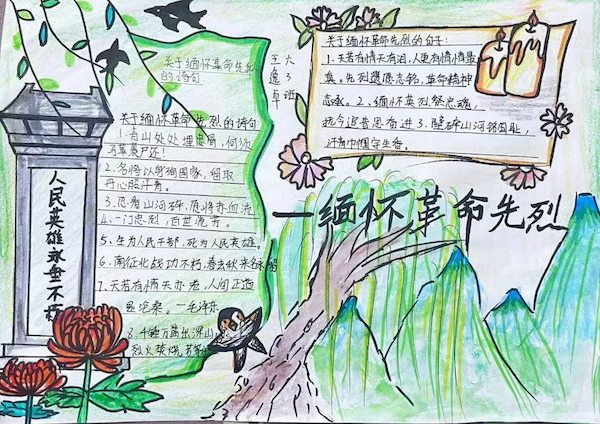 关于缅怀革命先烈
的诗句
关于缅怀革命先烈的诗句
1.青山处处埋忠骨，何须
马革裹尸还！
2.名将以身殉国家，留取
丹心照汗青。
3.忍看山河碎，愿将赤血流
4.一门忠烈，百世流芳。
5.生为人民干部，死为人民英雄。
6.南征北战功不朽，春去秋来名永
7.天若有情天亦老，人间正道
是沧桑。—毛泽东
8.千锤万凿出深山，
烈火焚烧若等
大3班
王逸卓
关于缅怀革命先烈的句子：
1.天若有情天有泪，人更有情情最
真。先烈遗愿志铭，革命精神
永。2.缅怀英烈祭忠魂，
抚今追昔思奋进3.壁碎山河
汗青巾帼守生香。
一缅怀革命先烈
人民英雄永垂不朽